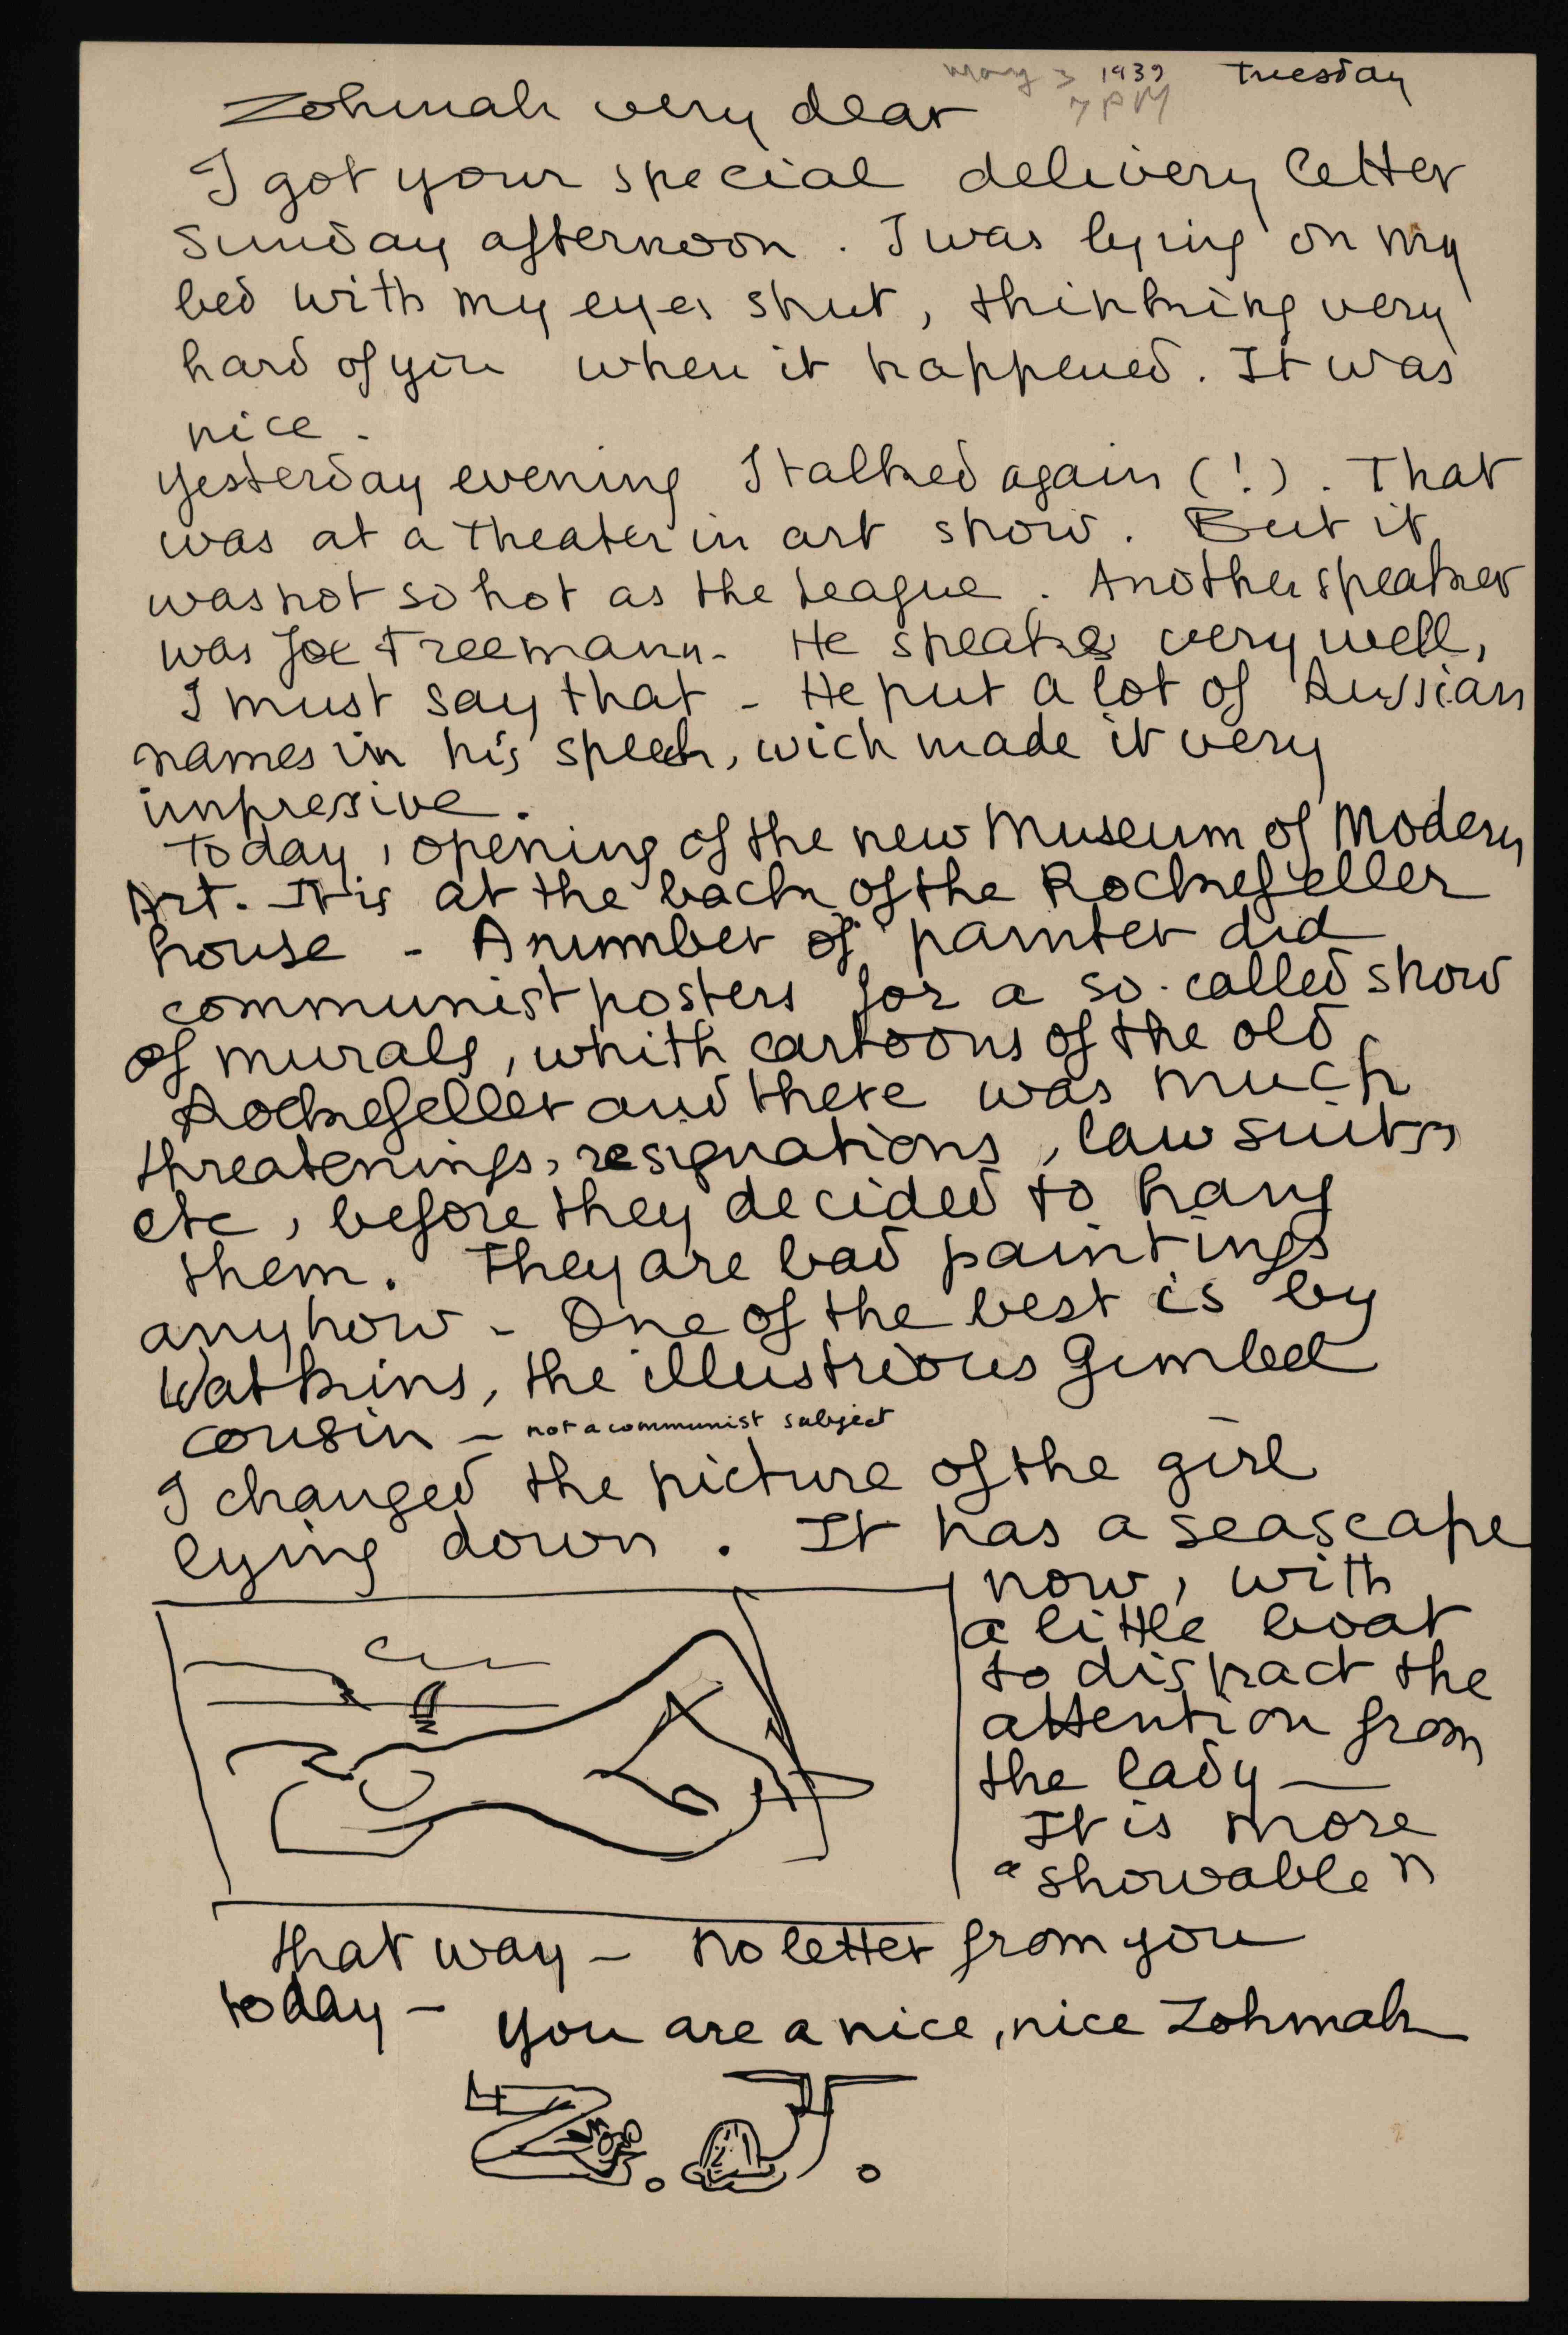 May 3 1939 Tuesday
7 PM
Zohmah very dear
I got your special delivery letter
Sunday afternoon. I was lying on my
bed with my eyes shut, thinking very
hard of you when it happened. It was
nice.
Yesterday evening I talked again (!). That
was at a theater in art show. But it
was not so hot as the League. Another speaker
was Joe Freemann - He speakes very well,
I must say that - He put a lot of Russian
names in his speech, wich made it very
impresive.
Today, opening of the new Museum of Modern
Art. It is at the back of the Rockefeller
house - A number of painter did
communist posters for a so-called show
of murals, whith cartoons of the old
Rockefeller and there was much
threatenings, resignations, lawsuits,
etc, before they decided to hang
them. They are bad paintings
anyhow - One of the best is by
Watkins, the illustrious Gimbel
cousin - not a communist subject
I changed the picture of the girl
lying down. It has a seascape
now, with
a little boat
to distract the
attention from
the lady —
It is more
"showable"
that way - No letter from you
today -
You are a nice, nice Zohmah
Z. J.